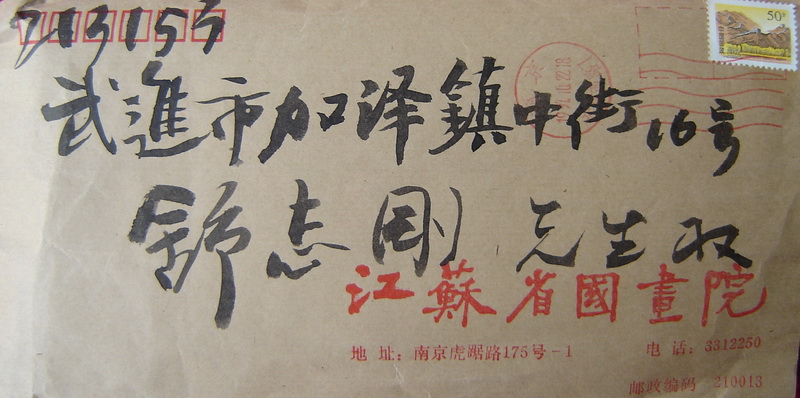 213155
50分
武進市加泽鎮中街16号
舒志剛 先生收
江蘇省國畫院
地 址：南京虎踞路175号-1 电 话：3312250
邮政编码 210013